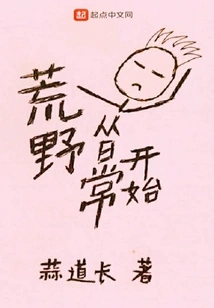 起点中文网
荒野
从日常
开始
蒜道长 著